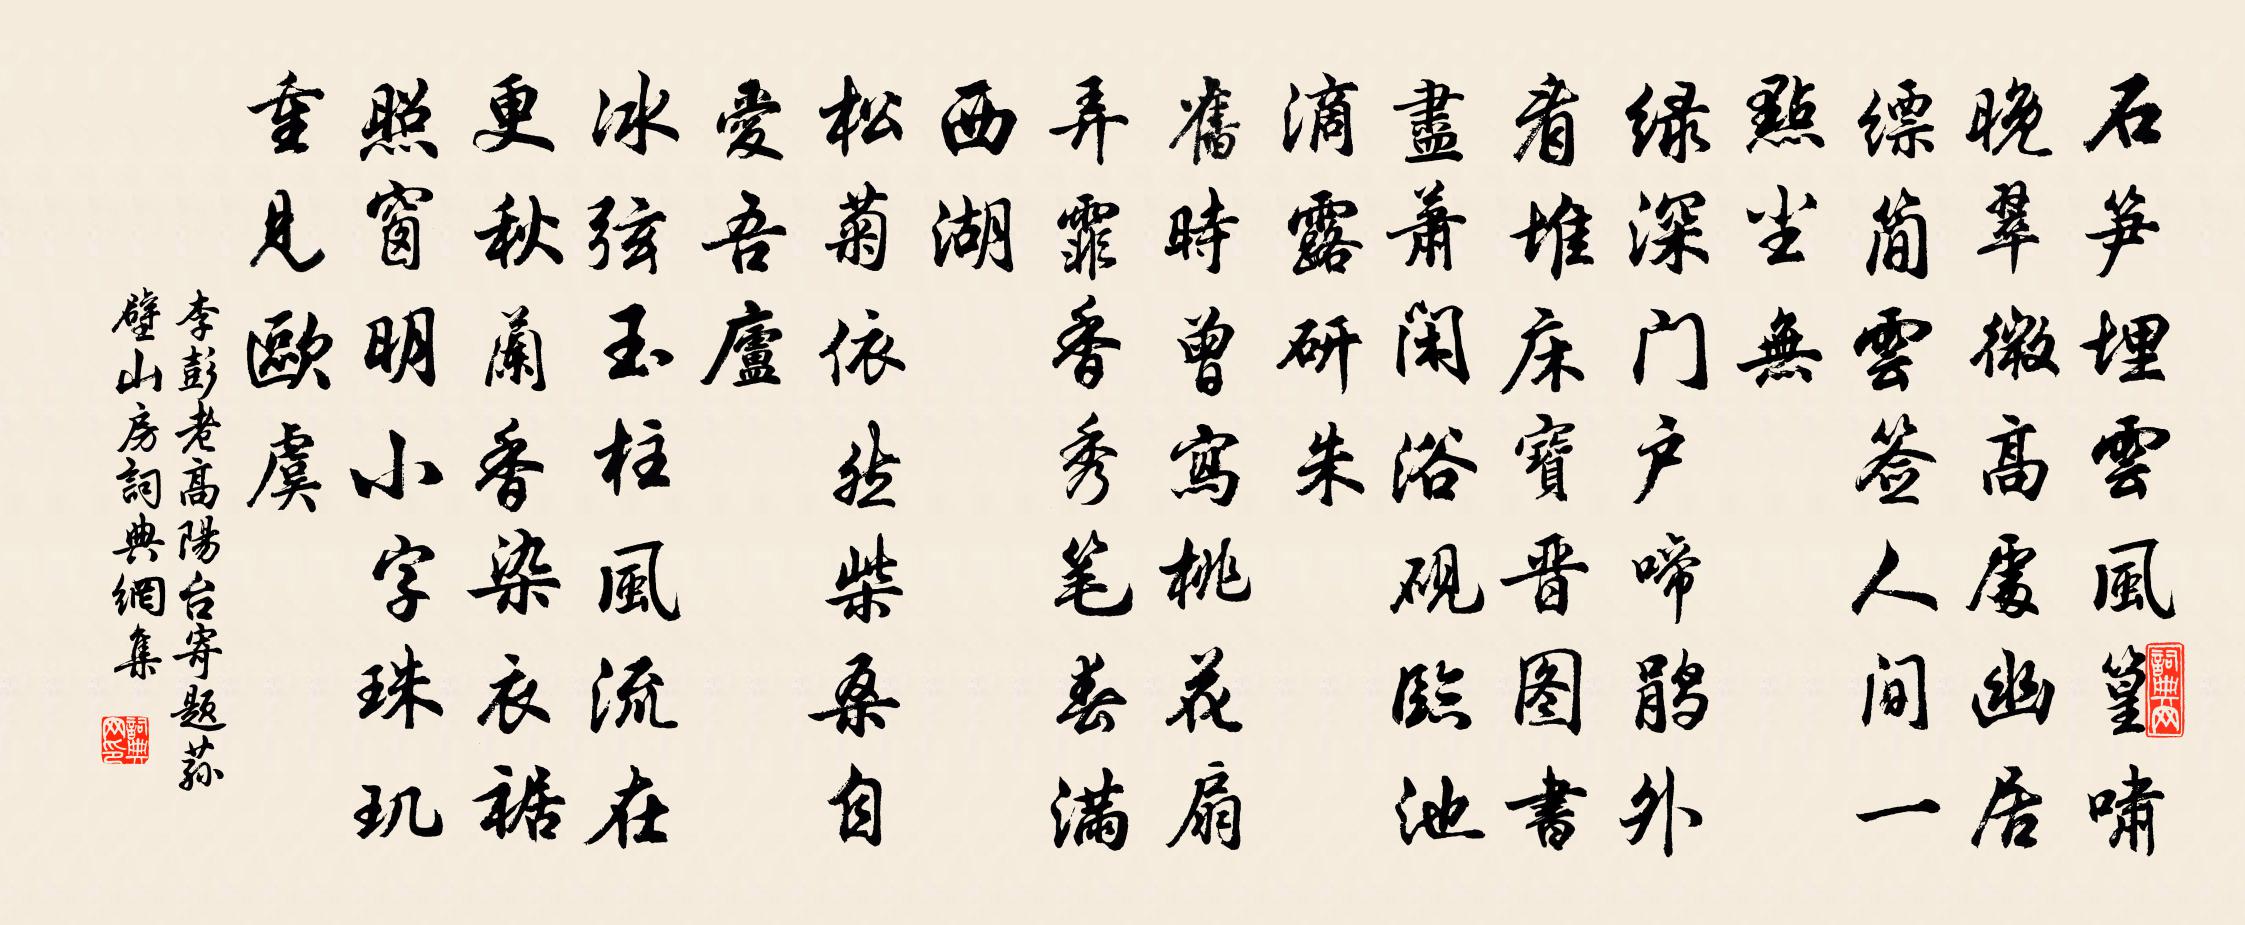 石笋埋雲風篁嘯
晚翠微高處幽居
縹简雲签人间一
點尘無
绿深门户啼鹃外
看堆床寶晋图書
盡萧闲浴砚臨池
滴露研朱
舊時曾寫桃花扇
弄霏香秀笔春滿
西湖
松菊依然柴桑自
愛吾廬
冰弦玉柱風流在
更秋蘭香染衣裾
照窗明小字珠玑
重見歐虞
李彭老高陽台寄題荪
壁山房詞典網集
詞典网
詞典网印